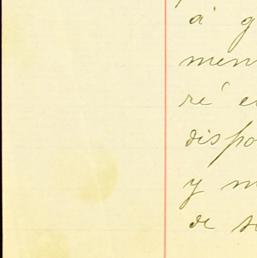 á g
men
ré e
dispo
y m
de s